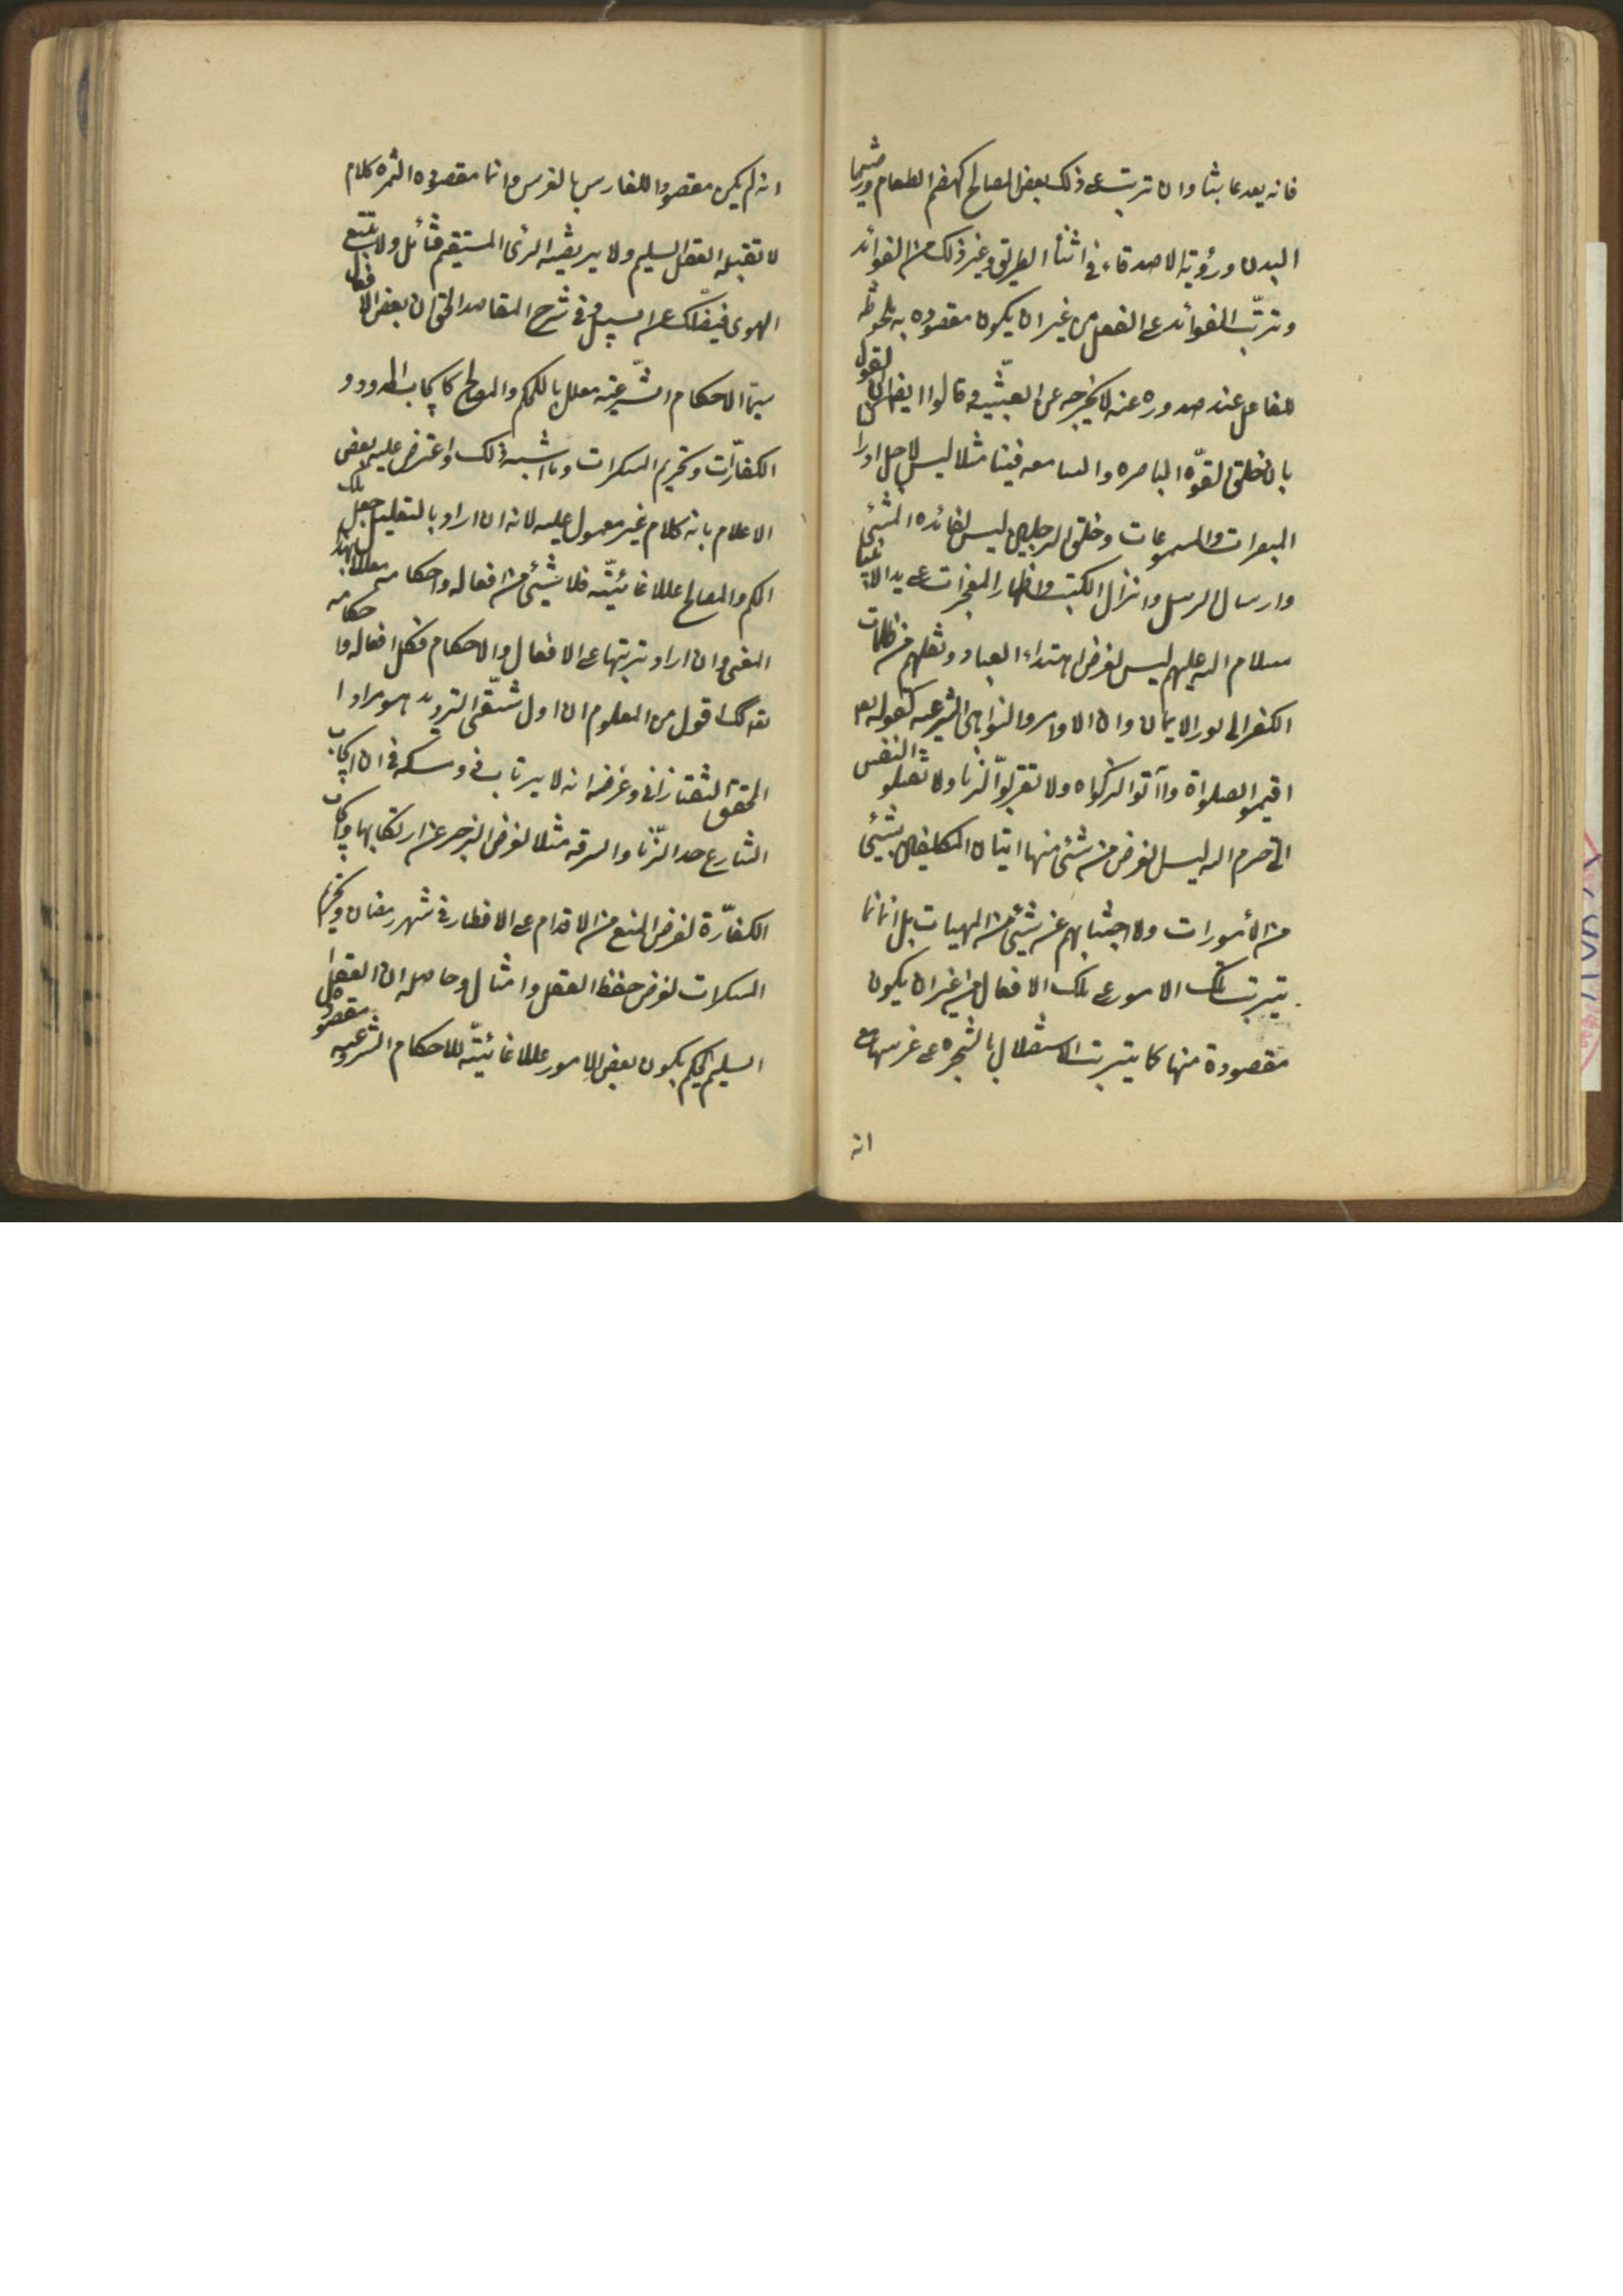 فانه يعد عابثا وان ترتب على ذلك بعض المصالح كهضم الطعام ورياضة
البدن ورؤية الاصدقاء في اثناء الطريق وغير ذلك من الفوائد
وترتّب الفوائد على الفعل من غير ان يكون مقصوده به ملحوظة
للفاعل عند صدوره عنه لا يخرجه عن العبثّيه وقالوا ايضا ان القول
بان خلق القوّه الباصره والسامعه فينا مثلا ليس لاجل ادراك
المبصرات والمسموعات وخلق الرجلين ليس لفائده المشئ
وارسال الرسل وانزال الكتب واظهار المعجزات على يد الانبياء
سلام الله عليهم ليس لغرض اهتداء العباد ونقلهم من ظلمات
الكفر الى نور الايمان وان الاوامر والنواهى الشرعيه كقوله تعالى
اقيموا الصلواة وآتوا الزكواه ولا تقربوا الزّنا ولا تقتلوا النفس
التى حرم الله ليس لغرض من شئ منها اتيان المكلفين بشئ
من المأمورات ولا اجتنابهم عن شئ من المنهيات بل انما
يترتب تلك الامور على تلك الافعال من غير ان يكون
مقصودة منها كما يترتب الاستظلال بالشجره على غرسها مع
انه
انه لم يكن مقصودا للغارس بالغرس وانما مقصوده الثمره كلام
لا تقبله العقل السليم ولا يرتضيه الرئ المستقيم فتأمل ولا تتبع
الهوى فيضلّك عن السبيل وفى شرح المقاصد الحق ان بعض الافعال
سيّما الاحكام الشّرعيّه معلل بالحكم والمصالح كايجاب الحدود و
الكفارّات وتحريم المسكرات وما اشبه ذلك واعترض عليه بعض
الاعلام بانه كلام غير معمول عليه لانه ان اراد بالتعليل جعل تلك
الحكم والمصالح عللا غائيّه فلا شئ من افعاله واحكامه معللا بهذا
المعنى وان اراد ترتبها على الافعال والاحكام فكل افعاله واحكامه
كذلك اقول من المعلوم ان اول شقّى الترديد هو مراد ا
لمحقق التفتازانى وغرضه انه لا يرتاب ذو مسكه فى ان ايجاب
الشارع حد الزّنا والسرقه مثلا لغرض الزجر عن ارتكابها وايجاب
الكفّارة لغرض المنع من الاقدام على الافطار فى شهر رمضان وتحريم
المسكرات لغرض حفظ العقل وامثال وحاصله ان العقل
السليم يحكم بكون بعض الامور عللا غائيّه للاحكام الشرعيه مقصوده